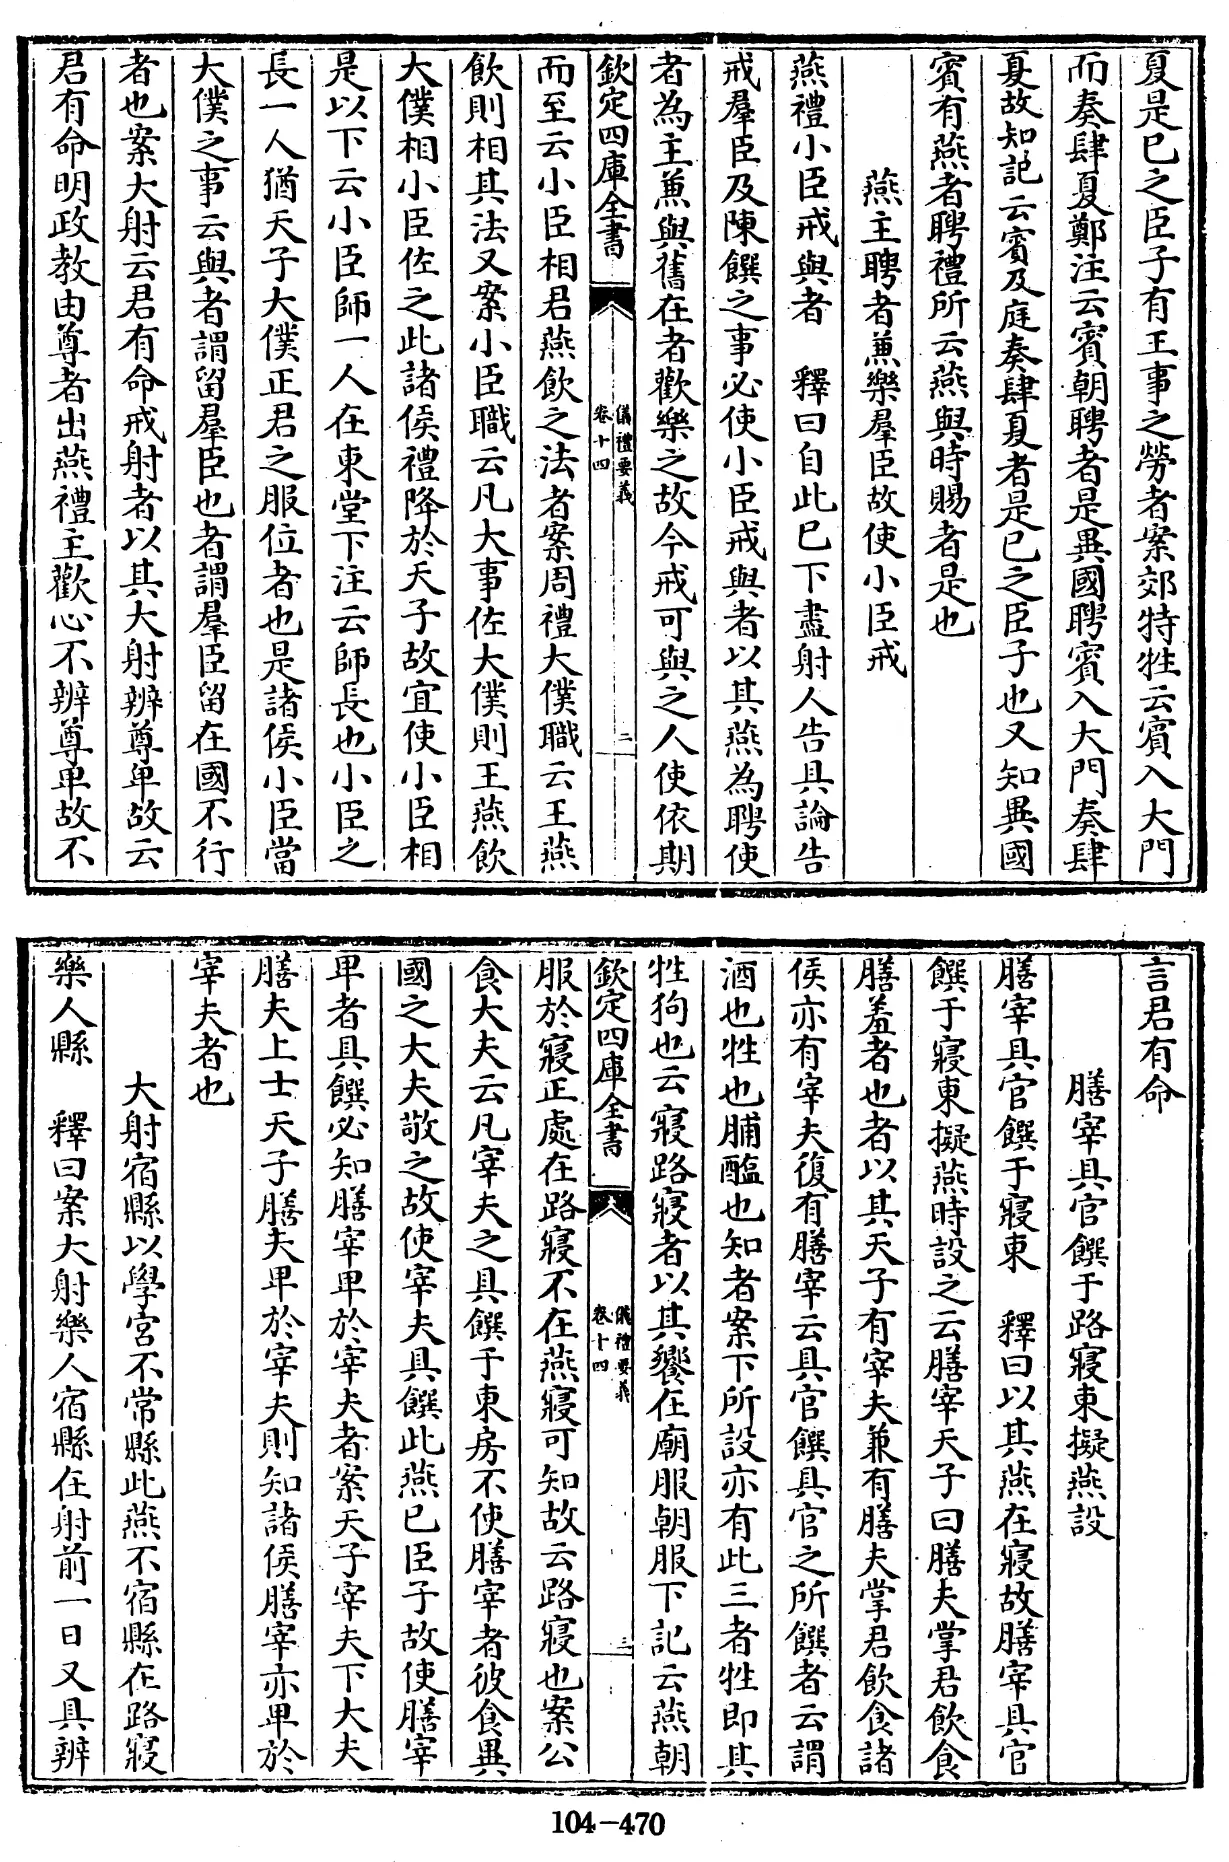 夏是已之臣子有王事之勞者案郊特牲云賓入大門
而奏肆夏鄭注云賓朝聘者是異國聘賓入大門奏肆
夏故知記云賓及庭奏肆夏者是已之臣子也又知異國
賓有燕者聘禮所云燕與時賜者是也
燕主聘者兼樂羣臣故使小臣戒
燕禮小臣戒與者　釋曰自此已下盡射人告具論告
戒羣臣及陳饌之事必使小臣戒與者以其燕為聘使
者為主兼與舊在者歡樂之故今戒可與之人使依期
欽定四庫全書
儀禮要義
卷十四
二
而至云小臣相君燕飲之法者案周禮大僕職云王燕
飲則相其法又案小臣職云凡大事佐大僕則王燕飲
大僕相小臣佐之此諸侯禮降於天子故宜使小臣相
是以下云小臣師一人在東堂下注云師長也小臣之
長一人猶天子大僕正君之服位者也是諸侯小臣當
大僕之事云與者謂留羣臣也者謂羣臣留在國不行
者也案大射云君有命戒射者以其大射辨尊卑故云
君有命明政教由尊者出燕禮主歡心不辨尊卑故不
言君有命
膳宰具官饌于路寢東擬燕設
膳宰具官饌于寢東　釋曰以其燕在寢故膳宰具官
饌于寢東擬燕時設之云膳宰天子曰膳夫掌君飲食
膳羞者也者以其天子有宰夫兼有膳夫掌君飲食諸
侯亦有宰夫復有膳宰云具官饌具官之所饌者云謂
酒也牲也脯醢也知者案下所設亦有此三者牲即其
牲狗也云寢路寢者以其饗在廟服朝服下記云燕朝
欽定四庫全書
儀禮要義
卷十四
三
服於寢正處在路寢不在燕寢可知故云路寢也案公
食大夫云凡宰夫之具饌于東房不使膳宰者彼食異
國之大夫敬之故使宰夫具饌此燕已臣子故使膳宰
卑者具饌必知膳宰卑於宰夫者案天子宰夫下大夫
膳夫上士天子膳夫卑於宰夫則知諸侯膳宰亦卑於
宰夫者也
大射宿縣以學宮不常縣此燕不宿縣在路寢
樂人縣　釋曰案大射樂人宿縣在射前一日又具辨
104-470